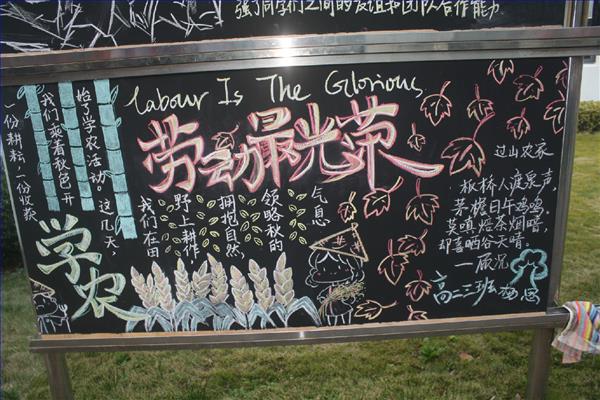 强了同学们之间的友谊和团队合作能力
Labour Is The Glorious
劳动最光荣
一份耕耘,一份收获
我们乘着秋色开
始了学农活动。这几天,
我们在田
野上耕作
拥抱自然,
领略秋的
气息
学农
过山农家
板桥人渡泉声,
茅檐日午鸡鸣。
莫嗔焙茶烟暗,
却喜晒谷天晴。
—顾况
高二三班